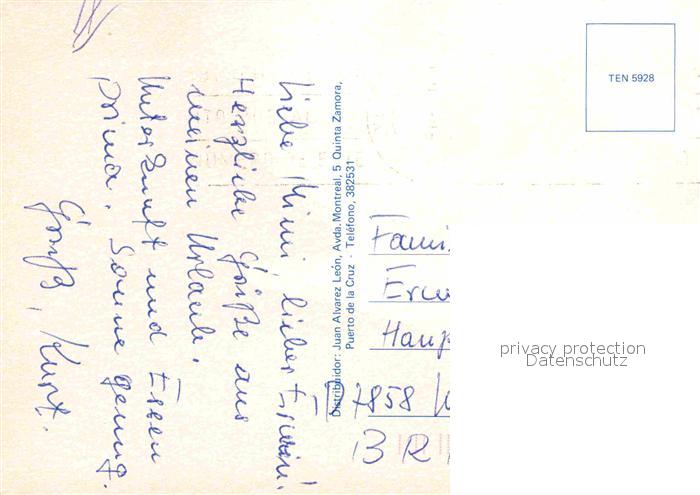 Liebe Mimi, lieber Erwin!
Herzliche Grüße aus
meinem Urlaub.
Unterkunft und Essen
prima. Sonne genug.
Gruß, Kurt.
Distribuidor: Juan Alvarez León, Avda. Montreal, 5 Quinta Zamora,
Puerto de la Cruz - Teléfono, 382531
TEN 5928
Fami
Erw
Haup
7858 W
B R
privacy protection
Datenschutz